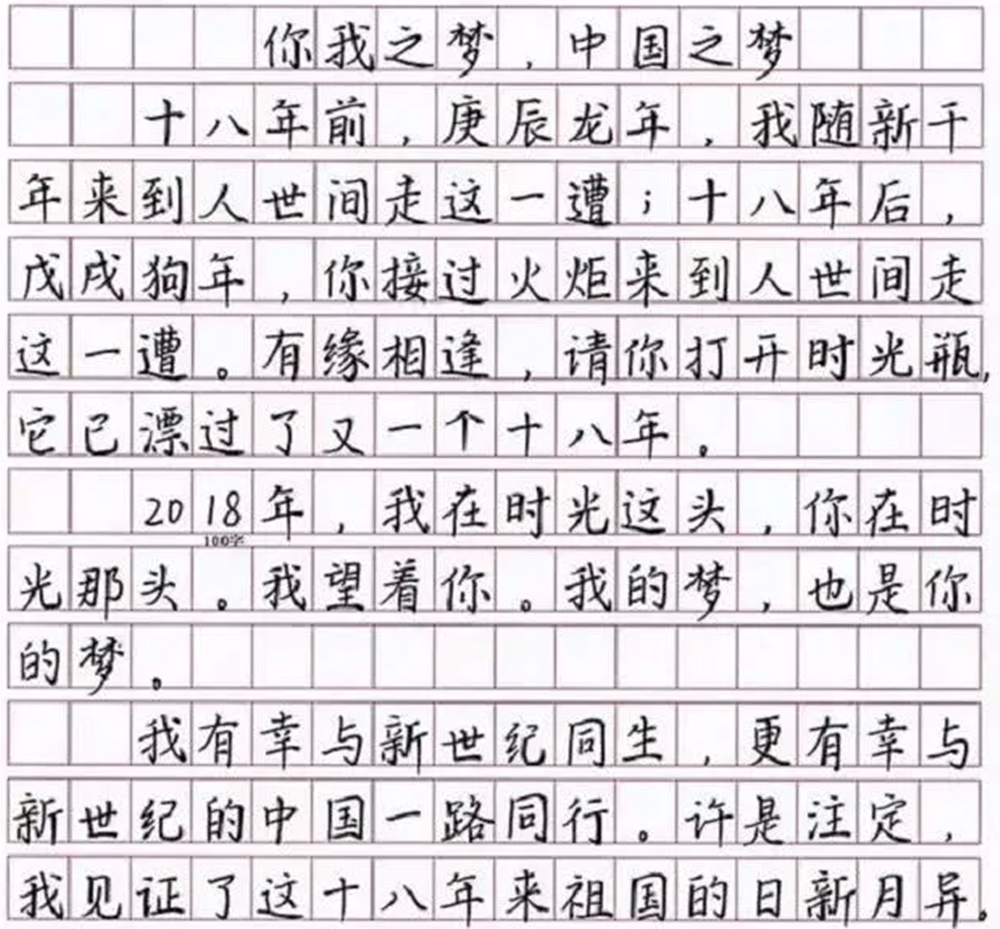 你我之梦,中国之梦
十八年前,庚辰龙年,我随新千
年来到人世间走这一遭;十八年后,
戊戌狗年,你接过火炬来到人世间走
这一遭。有缘相逢,请你打开时光瓶,
它已漂过了又一个十八年。
2018年,我在时光这头,你在时
100字
光那头。我望着你。我的梦,也是你
的梦。
我有幸与新世纪同生,更有幸与
新世纪的中国一路同行。许是注定,
我见证了这十八年来祖国的日新月异。